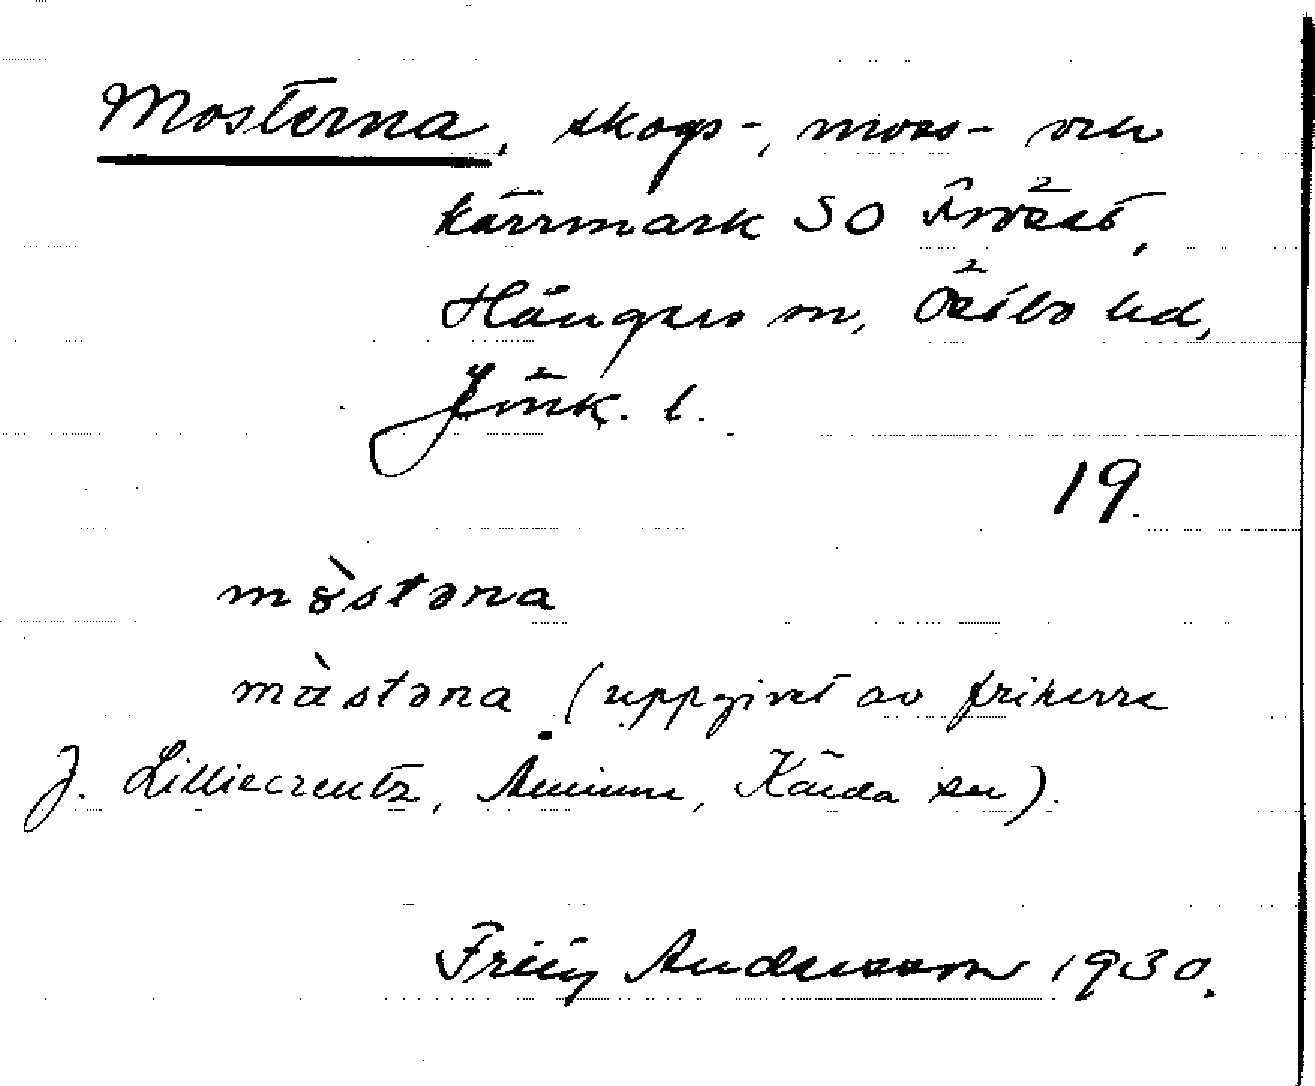 Mosterna, skogs-, moss- och
kärrmark SO
Hångers sn, Östbo hd,
Jönk. l.
19.
mòstəna
màstəna (uppgivet av friherre
J. Lilliecreutz, Kärda sn).
Andersson 1930.